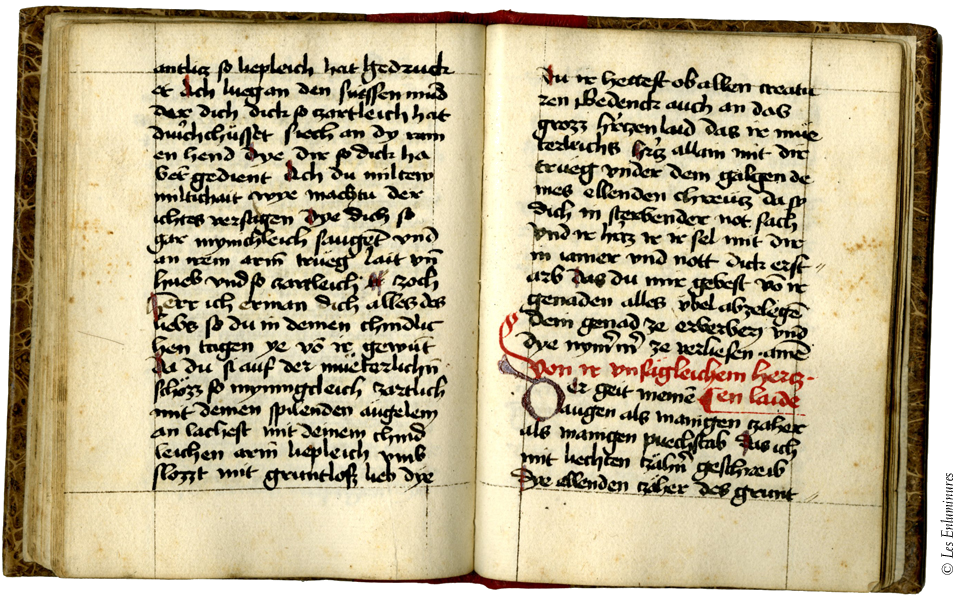 antlicz so liepleich hat gedruck
et Sich lueg an den suessen mund
der dich dick so czartleich hat
durchchüsset Siech an dy rain
en hend Dye dir so dick ha
bet gedient Ach du miltew
miltichait wye machtu der
ichtes versagen Dye dich so
gar mynichleich sauget vnd
an irem arm trueg lait vñ
hueb vnd so czartleich zoch
Herr ich erman dich alles des
liebs so du in deinen chindlic
hen tagen ye võ ir gewüt
Da du si auf der müeterlichñ
schozz so mynnigcleich czartlich
mit deinen spilenden augelein
an lachest mit deinem chind
leichen armñ liepleich vmb
slozzt mit gruntloss lieb dye
Du ir hettest ob allen creatu
ren Bedenck auch an das
grozz herczen laid das ir müe
terleichs hercz allain mit dir
trueg vnder dem galgen de
ines ellenden chreucz da sy
dich in sterbender not sach
Vnd ir hercz ir ir sel mit dir
in iamer vnd nott dick erst
arb Das du mir gebest võ ir
genaden alles vbel abzelegen
Dein genad ze erberben vnd
dye nymmer ze verliesen amen
Von ir vnsägleichem hercz-
en laide
Der geit meinen
augen als manigen czaher
als manigen puechstab Das ich
mit liechten czähern geschreib
Dye ellenden czäher des grunt
© Les Enluminures